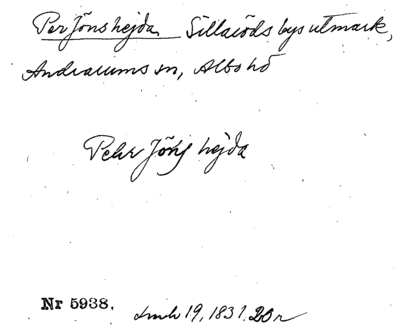 Per Jöns hejda Sillaröds bys utmark,
Andrarums sn, Albo hd
Pehr Jöns hejda
Nr 5938. Lmh 19, 1831, 20 r